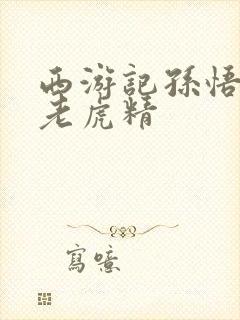 西游記孫悟
老虎精
寫噫